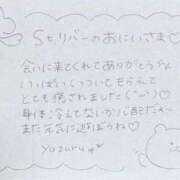 Stリバーのおにいさま♡
会いに来てくれてありがとうっ
いっぱいくっついてもらえて
とても癒されました
身体 冷えてないか心配だぁー
また元気に遊ぼうね♡
yuzuru